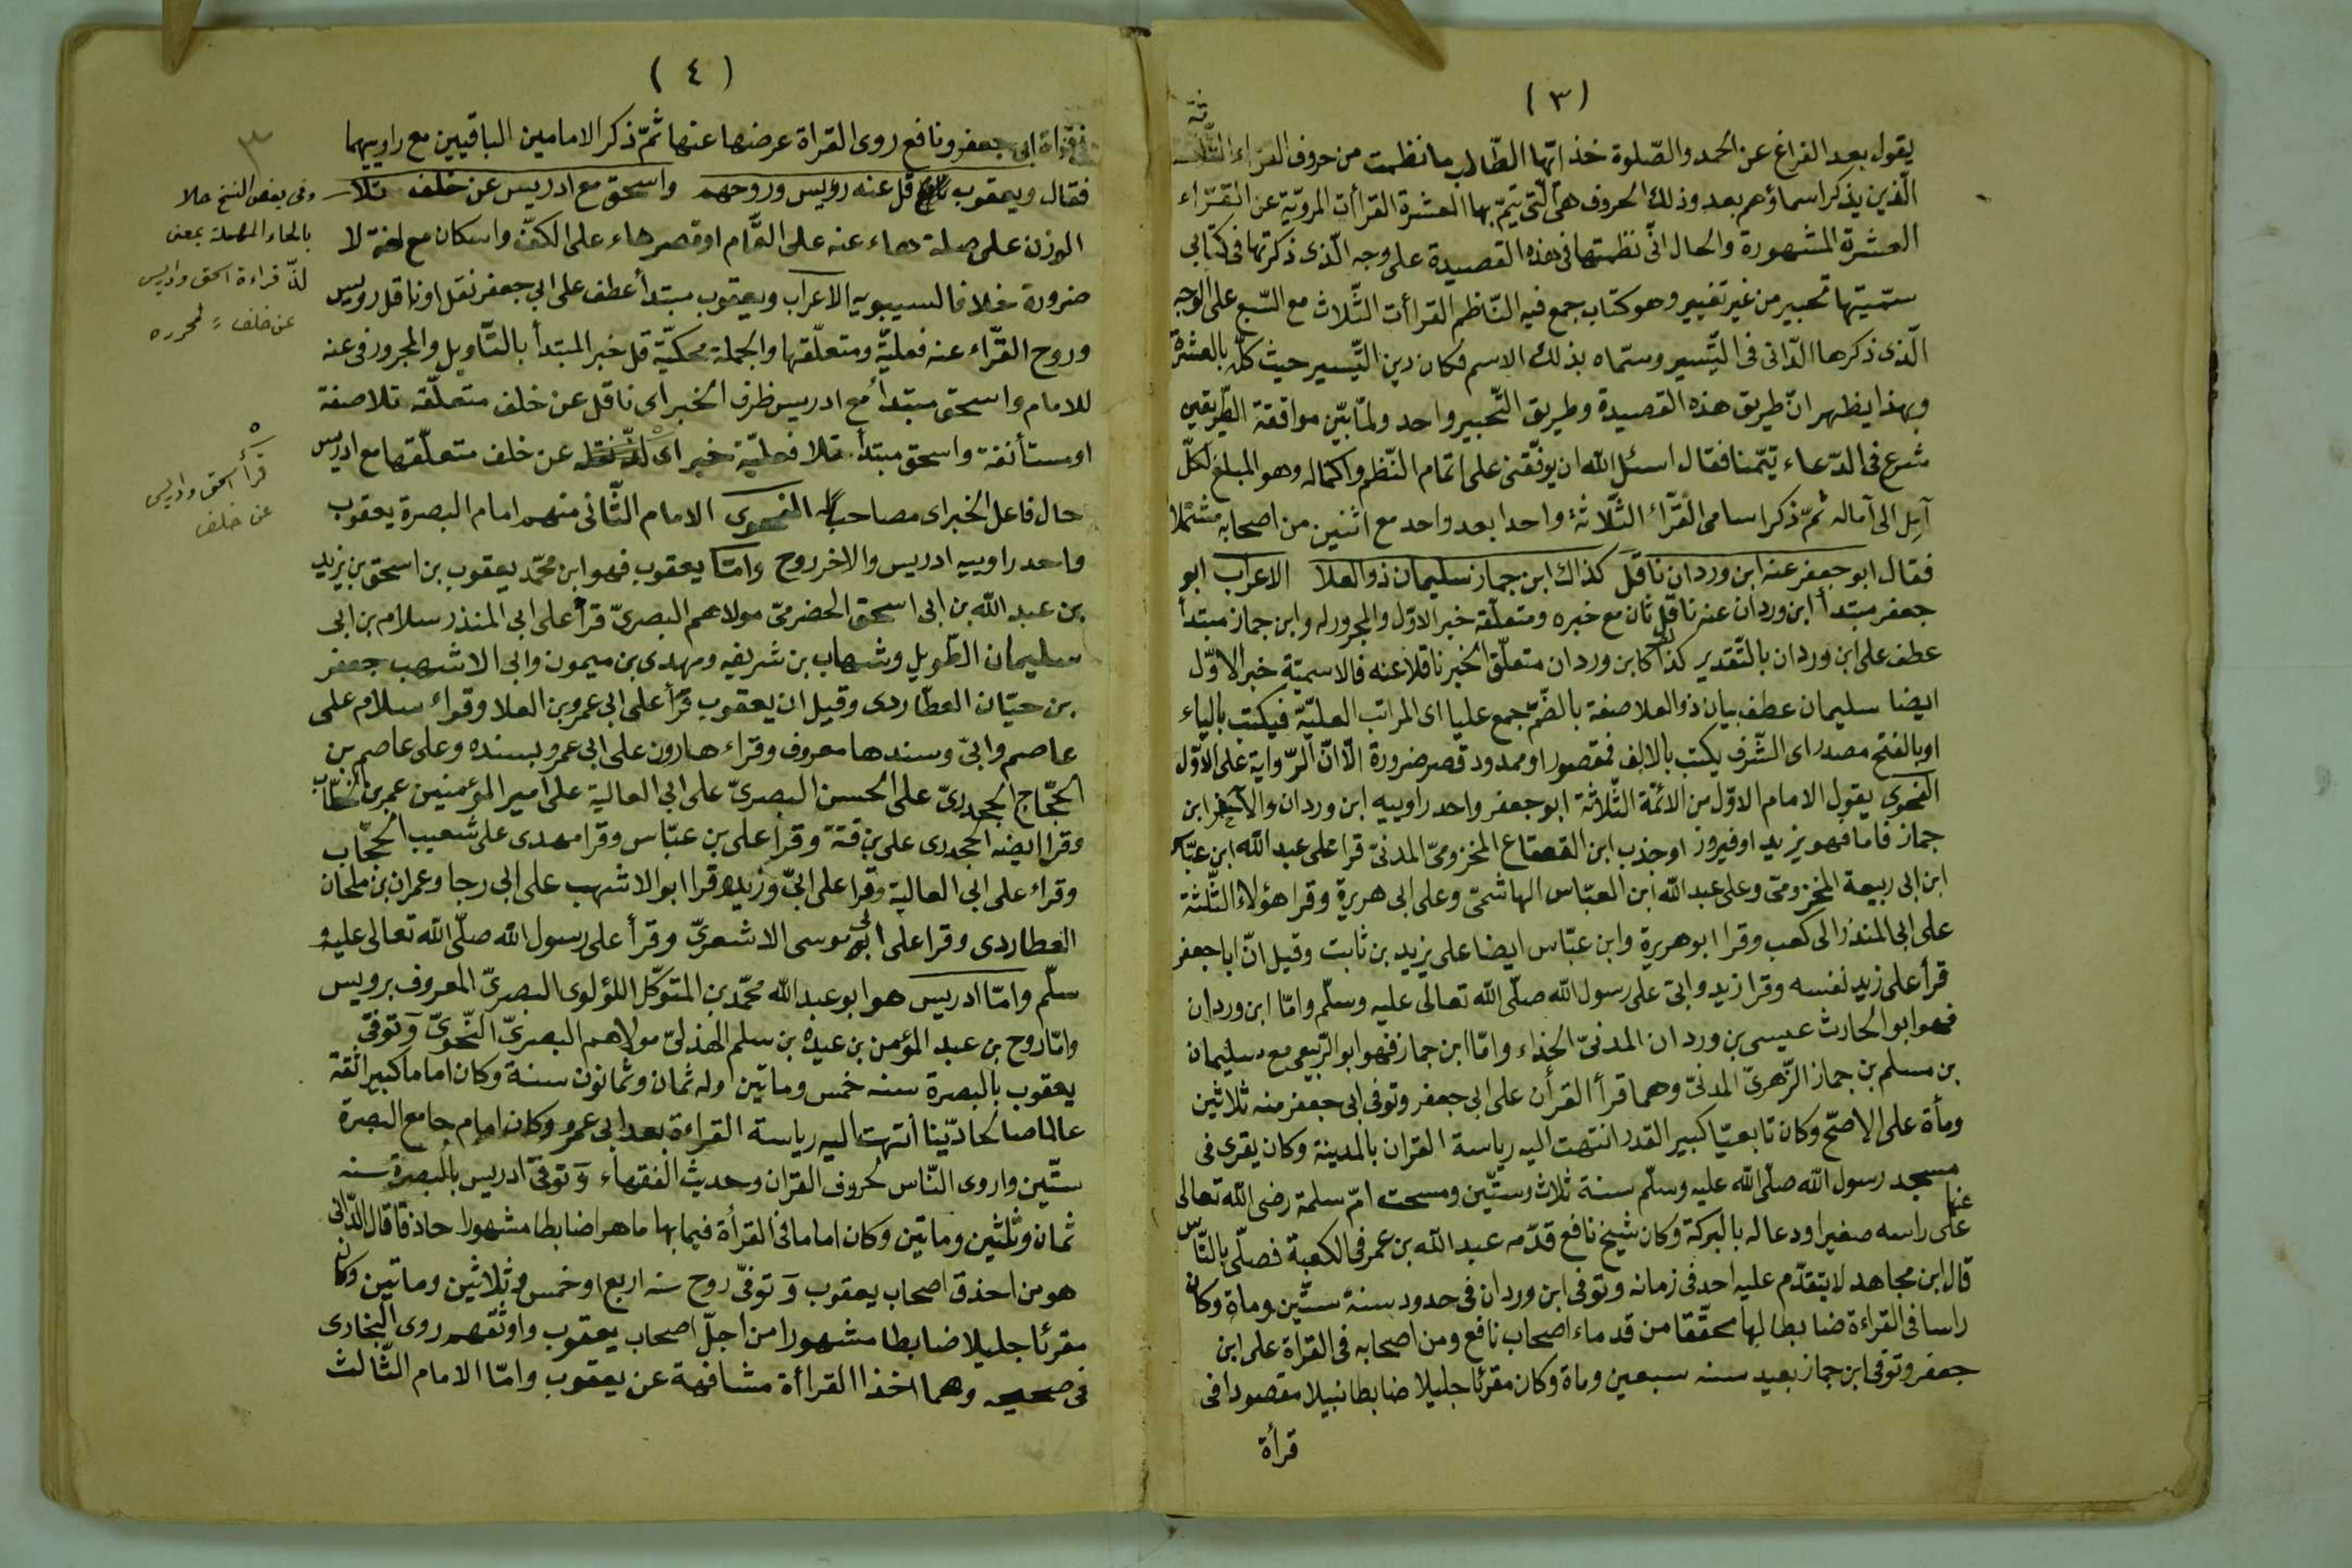 (٣)
يقول بعد الفراغ عن الحمد والصّلوة خذ ايّها الطّالب ما نظمت من حروف القرّاء الثّلثة
الّذين يذكر اسماؤهم بعد وذلك الحروف هى الّتى يتمّ بها العشرة القراأت المرويّة عن القرّاء
العشرة المشهورة والحال انّى نظمتها فى هذه القصيدة على وجه الّذى ذكرتها فى كتابى
سمّيتها تحبير من غير تغيير وهو كتاب جمع فيه النّاظم القراأت الثّلاث مع السّبع على الوجه
الّذى ذكرها الدّانى فى التّيسير وسمّاه بذلك الاسم فكان زين التّيسير حيث كلّ بالعشرة
وبهذا يظهر انّ طريق هذه القصيدة وطريق التّحبير واحد ولمّا بيّن موافقة الطّريقين
شرع فى الدّعاء تيّمنا فقال اسئل الله ان يوفّقنى على اتمام النّظم واكماله وهو المبلغ لكلّ
آمِل الى آماله ثمّ ذكر اسامى القرّاء الثّلاثة واحدا بعد واحد مع اثنين من اصحابه مشتملا
فقال ابو جعفر عنه ابن وردان ناقل كذاك ابن جماز سليمان ذو العلا الاعراب ابو
جعفر مبتدأ ابن وردان عنه ناقل ثان مع خبره ومتعلّقه خبر الاوّل والمجرور له وابن جماز مبتدأ
عطف على ابن وردان بالتّقدير كذاك كابن وردان متعلّق الخبر ناقلا عنه فالاسميّة خبر الاوّل
ايضا سليمان عطف بيان ذو العلا صفة بالضّم جمع عليا اى المراتب العليّة فيكتب بالياء
او بالفتح مصدر اى الشّرف يكتب بالالف فمقصور او ممدود قصر ضرورة الّا انّ الرّواية على الاوّل
الفحوى يقول الامام الاوّل من الائمّة الثّلاثة ابو جعفر واحد راوييه ابن وردان والآخر ابن
جماز فاما فهو يزيد او فيروز او جندب ابن القعقاع المخزومىّ المدنىّ قرا على عبد الله ابن عبّاس
ابن ابى ربيعة المخزومىّ وعلى عبد الله ابن العبّاس الهاشمىّ وعلى ابى هريرة وقرا هؤلاء الثّلثة
على ابى المنذر ابى كعب وقرا ابو هريرة وابن عبّاس ايضا على يزيد بن ثابت وقيل انّ ابا جعفر
قرأ على زيد نفسه وقرا زيد وابىّ على رسول الله صلّى الله تعالى عليه وسلّم وامّا ابن وردان
فهو ابو الحارث عيسى بن وردان المدنىّ الحذاء وامّا ابن جماز فهو ابو الرّبيع سليمان
بن مسلم بن جماز الزّهرىّ المدنىّ وهما قرأ القرأن على ابى جعفر وتوفى ابى جعفر منه ثلاثين
ومأة على الاصحّ وكان تابعيّا كبير القدر انتهت اليه رياسة القران بالمدينة وكان يقرى فى
مسجد رسول الله صلّى الله عليه وسلّم سنة ثلاث وستّين ومسحت امّ سلمة رضى الله تعالى عنها
على راسه صغيرا ودعا له بالبركة وكان شيخ نافع قدّمه عبد الله بن عمر فى الكعبة فصلّى بالنّاس
قال ابن مجاهد لا يتقدّم عليه احد فى زمانه وتوفى ابن وردان فى حدود سنة ستّين وماة وكان
راسا فى القراءة ضابطا لها محقّقا من قدماء اصحاب نافع ومن اصحابه فى القرأة على ابن
جعفر وتوفى ابن جماز بعيد سنه سبعين وماة وكان مقرئا جليلا ضابطا نبيلا مقصودا فى
قرأة
(٤)
قراءة ابى جعفر ونافع روى القراة عرضها عنها ثمّ ذكر الامامين الباقيين مع راوييهما
فقال ويعقوب قل عنه رويس وروحهم واسحق مع ادريس عن خلف تلا
الوزن على صلة هاء عنه على التّمام او قصر هاء على الكفّ واسكان مع لغة لا
ضرورة خلافا لسيبويه الاعراب ويعقوب مبتدأ عطف على ابى جعفر نقل او ناقل رويس
وروح القرّاء عنه فعليّة ومتعلّقها والجملة محكيّة قل خبر المبتدأ بالتّاويل والمجرور فى عنه
للامام واسحق مبتدأ مع ادريس ظرف الخبر اى ناقل عن خلف متعلّقه تلا صفة
او مستأنفة واسحق مبتدأ تلا فعليّة خبر اى عن خلف متعلّقها مع ادريس
حال فاعل الخبر اى مصاحبا له الفحوى الامام الثّانى منهم امام البصرة يعقوب
واحد راوييه ادريس والاخر روح وامّا يعقوب فهو ابن محمّد يعقوب بن اسحق بن يزيد
بن عبد الله بن ابى اسحق الحضرمىّ مولاهم البصرىّ قرأ على ابى المنذر سلام بن ابى
سليمان الطّويل وشهاب بن شريفه ومهدى بن ميمون وابى الاشهب جعفر
بن حيّان العطّاردى وقيل ان يعقوب قرأ على ابى عمرو بن العلا وقراء سلام على
عاصم وابىّ وسندها معروف وقراء هارون على ابى عمرو بسنده وعلى عاصم بن
الحجّاج الجحدرىّ على الحسن البصرىّ على ابى العالية على امير المؤمنين عمر بن الخطّاب
وقرا ايضه الجحدرى على بن قتة وقرأ على بن عبّاس وقرا مهدى على شعيب الحجّاب
وقراء على ابى العالية وقرا على ابىّ وزيد وقرا ابو الاشهب على ابى رجا وعمران بن ملحان
العطاردى وقرا على ابى موسى الاشعرىّ وقرأ على رسول الله صلّى الله تعالى عليه و
سلّم وامّا ادريس هو ابو عبد الله محمّد بن المتوكّل اللؤلوى البصرىّ المعروف برويس
وامّا روح بن عبد المؤمن بن عبده بن سلم الهذلىّ مولاهم البصرىّ النّحوىّ وتوفىّ
يعقوب بالبصرة سنه خمس وماتين وله ثمان وثمانون سنة وكان اماما كبيرا ثقة
عالما صالحا ديّنا انتهت اليه رياسة القراءة بعد ابى عمرو وكان امام جامع البصرة
ستّين واروى النّاس لحروف القران وحديث الفقهاء وتوفىّ ادريس بالبصرة سنه
ثمان وثلثين وماتين وكان اماما فى القرأة فيما بها ماهرا ضابطا مشهورا حاذقا قال الدّانى
هو من احذق اصحاب يعقوب وتوفىّ روح سنه اربع او خمس وثلاثين وماتين وكان
مقرئا جليلا ضابطا مشهورا من اجلّ اصحاب يعقوب واوثقهم روى البخارى
فى صحيحه وهما اخذا القراأة مشافهة عن يعقوب وامّا الامام الثّالث
٣
وفى بعض النسخ حلا
بالحاء المهملة بمعنى
لذّ قراءة اسحق وادريس
عن خلف لمحرره
٥
قرأ اسحق وادريس
عن خلف